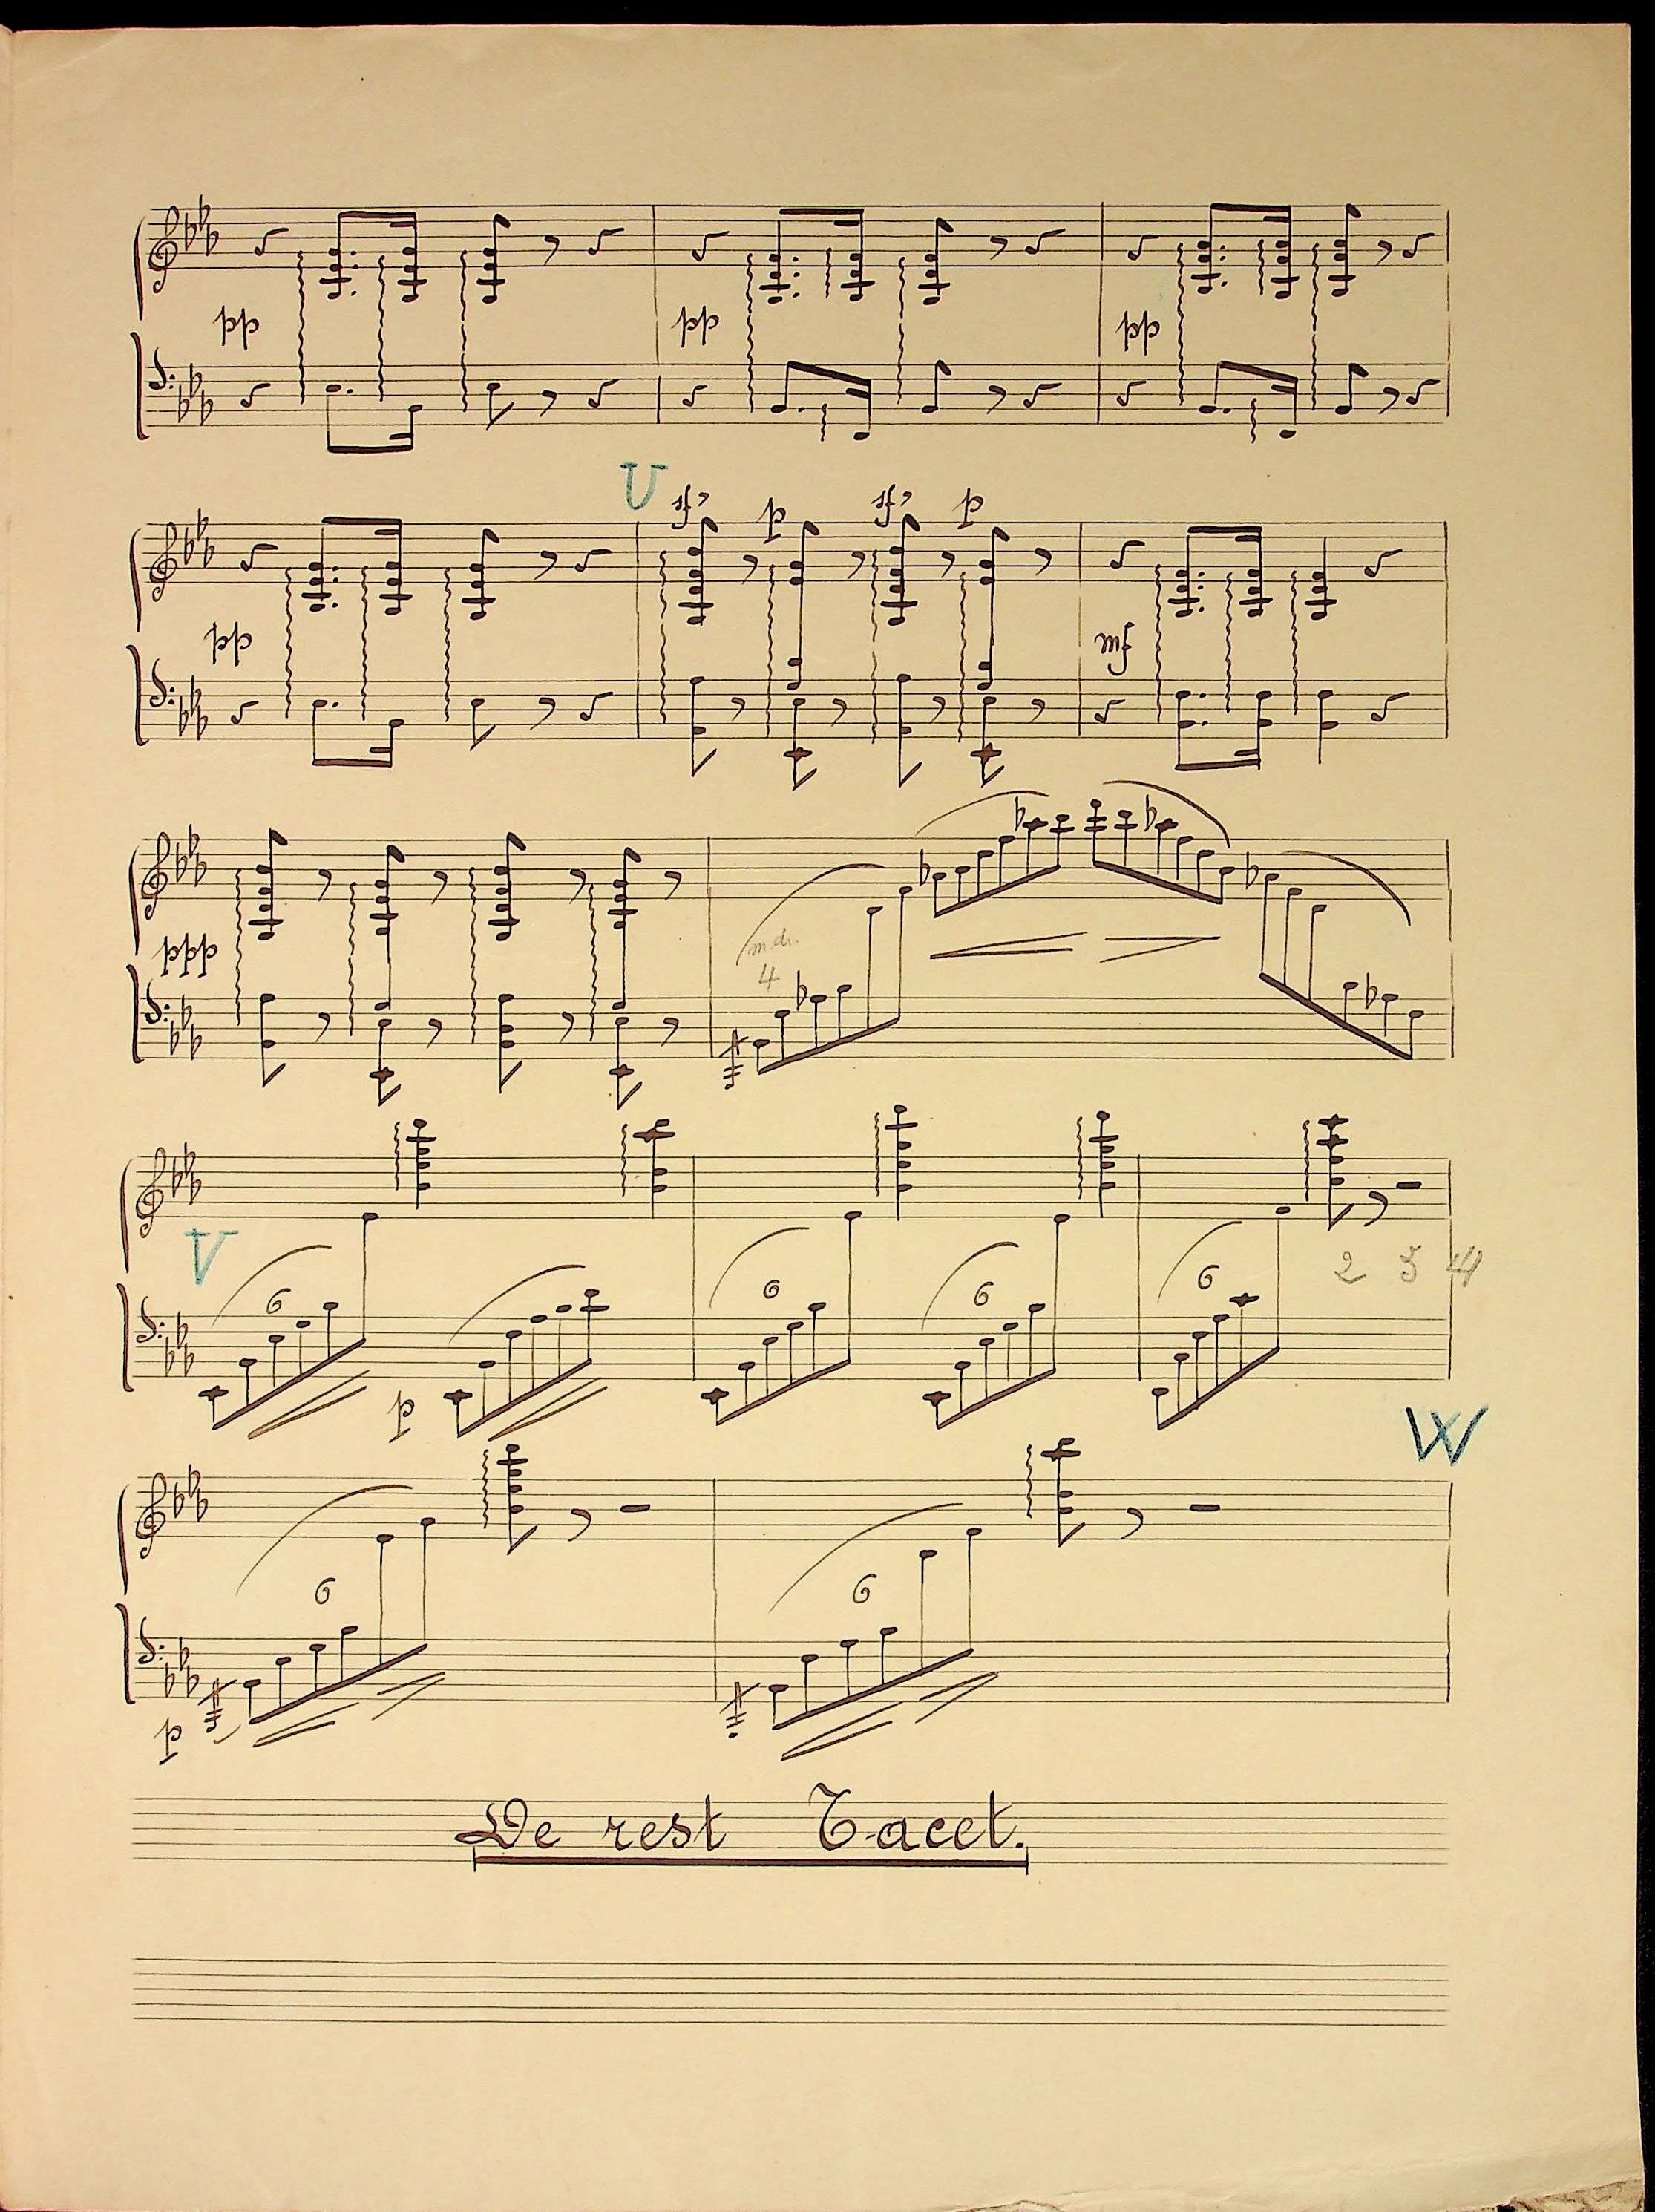 pp pp pp
U sf p sf p
pp mf
ppp m.d.
4
V 6 6 6 6
2 3 4
p
W
6 6
p
De rest Tacet.